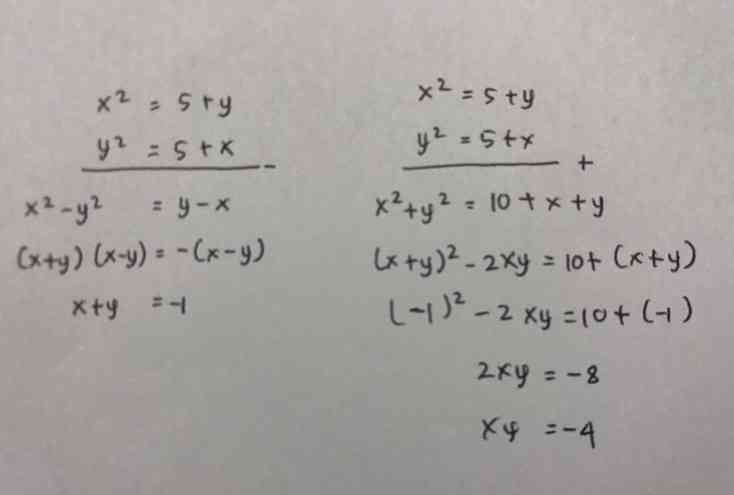 x² = 5 + y
y² = 5 + x
-
x² - y² = y - x
(x+y) (x-y) = -(x-y)
x+y = -1
x² = 5 + y
y² = 5 + x
+
x² + y² = 10 + x + y
(x+y)² - 2xy = 10 + (x+y)
(-1)² - 2xy = 10 + (-1)
2xy = -8
xy = -4